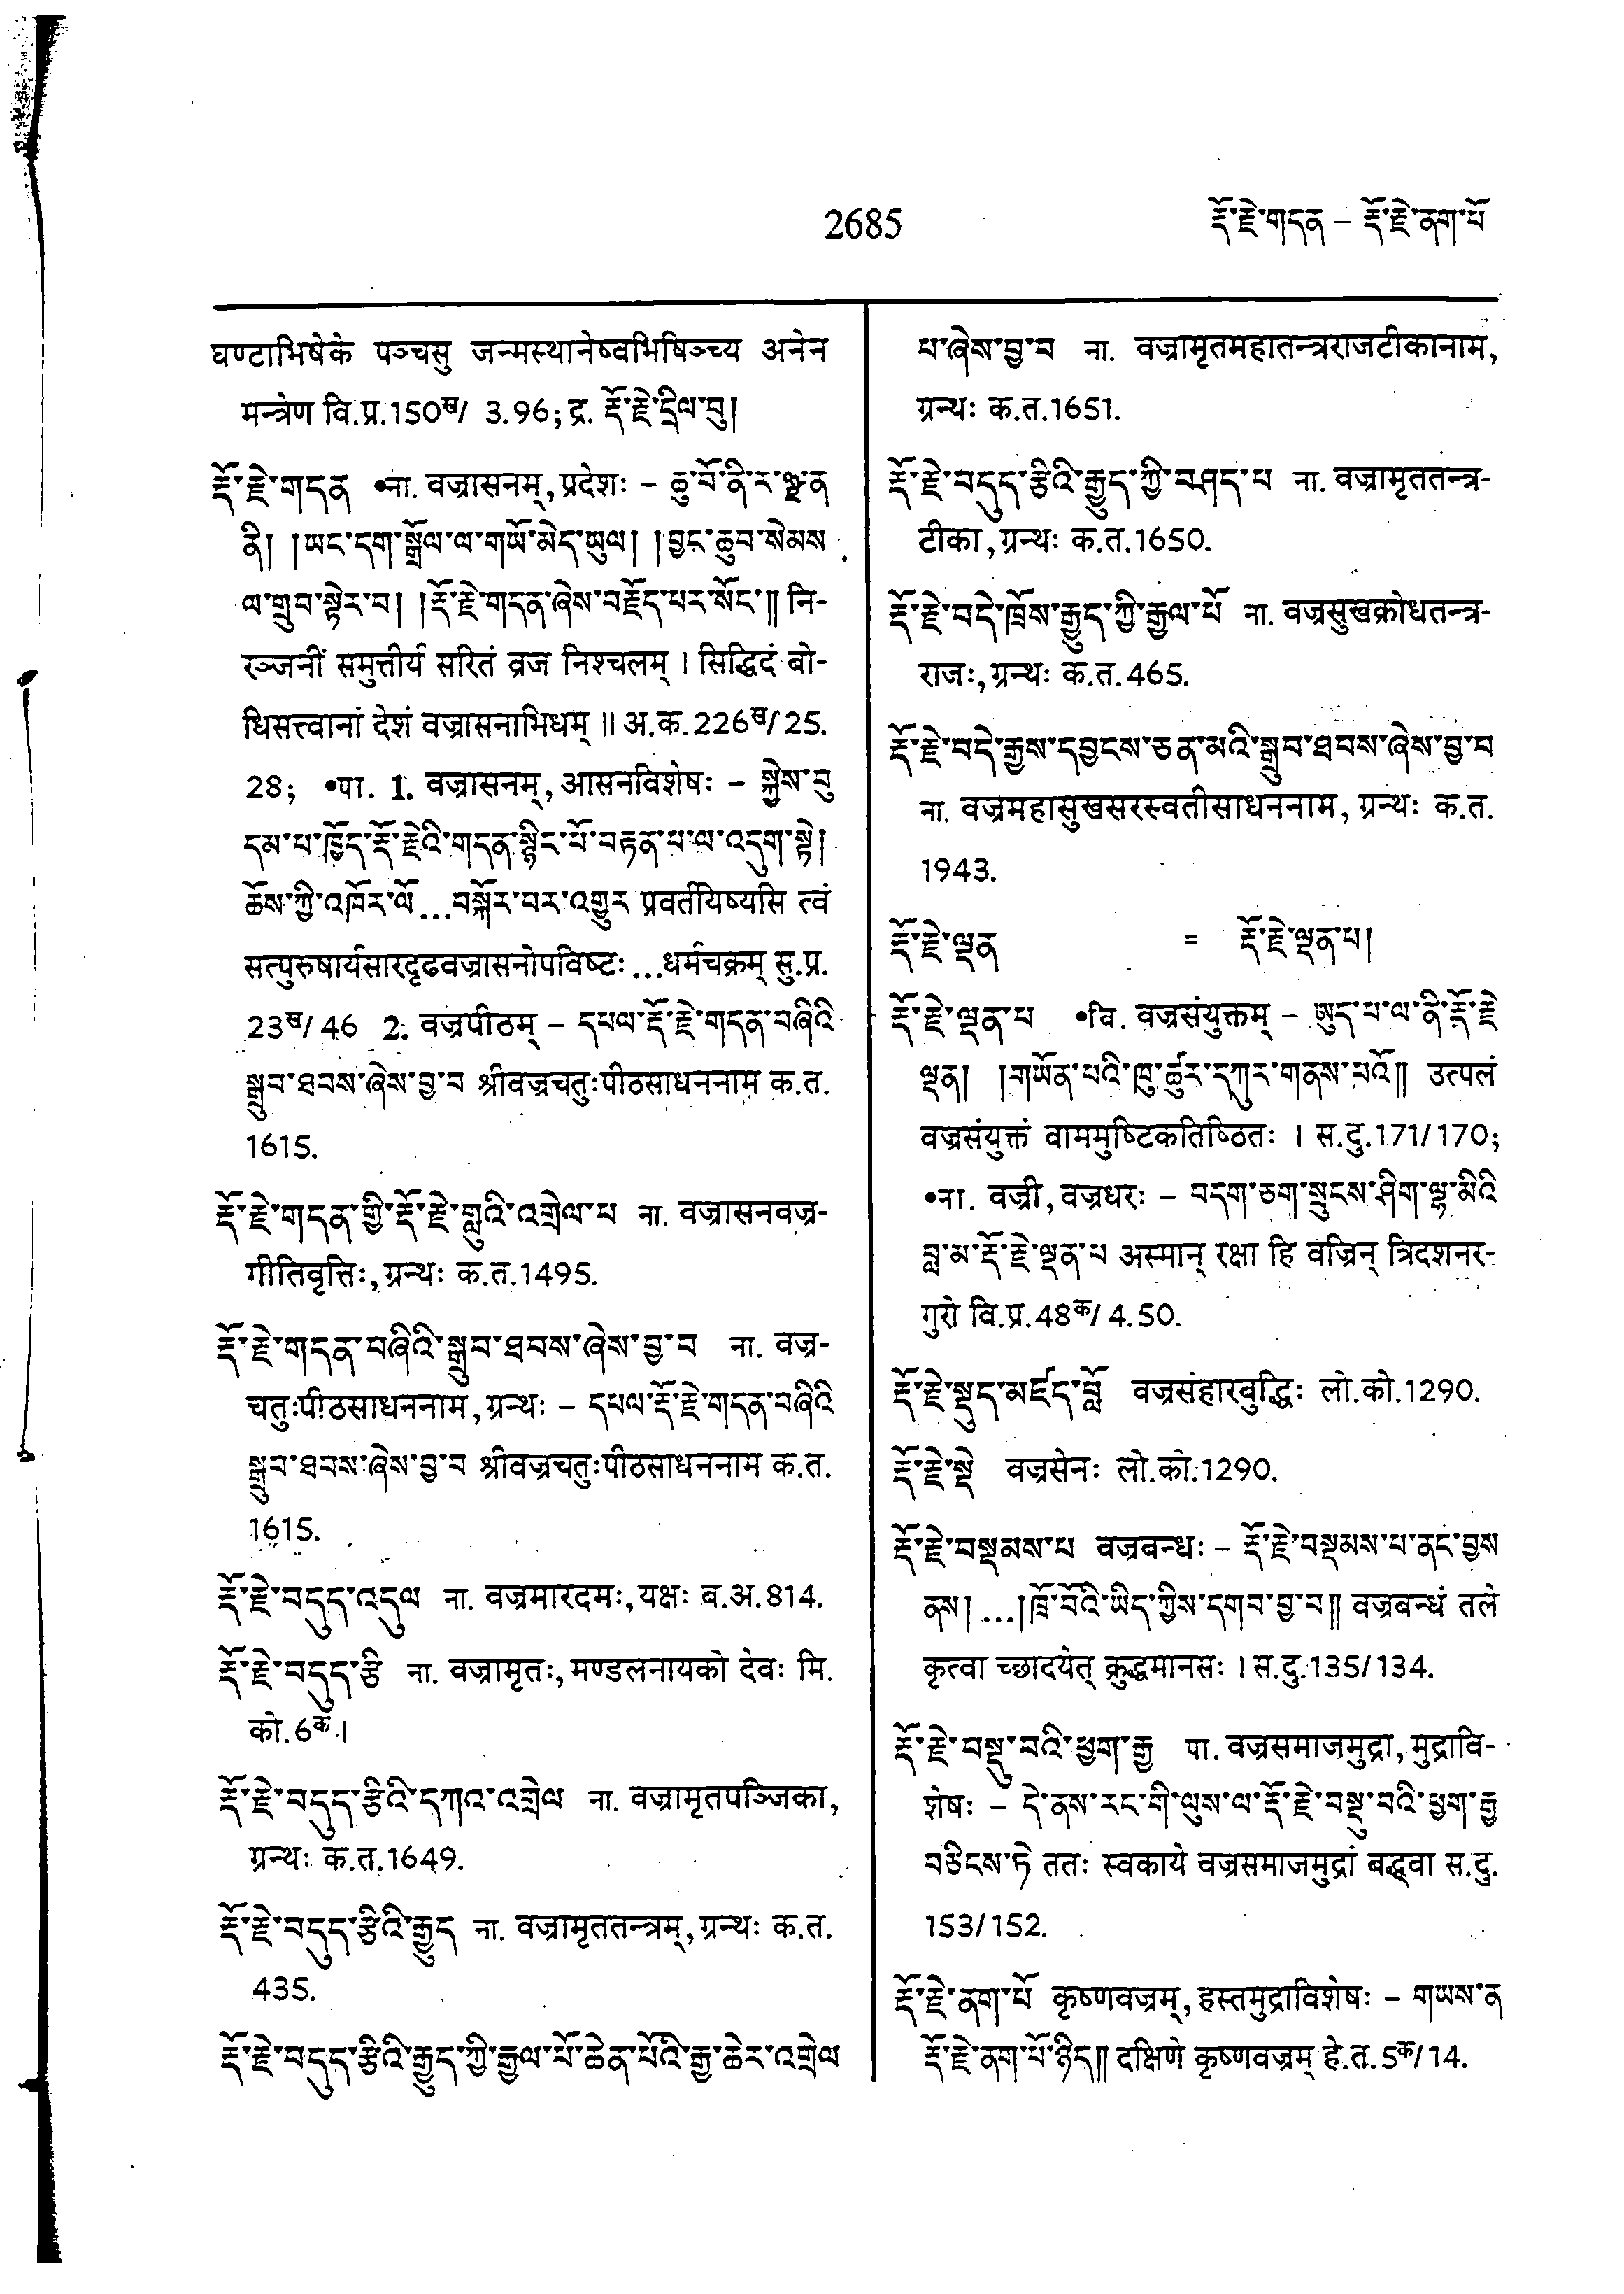 2685
རྡོ་རྗེ་གདན – རྡོ་རྗེ་ནག་པོ
घण्टाभिषेके पञ्चसु जन्मस्थानेष्वभिषिञ्च्य अनेन
मन्त्रेण वि.प्र.150ख/ 3.96; द्र. རྡོ་རྗེ་དྲིལ་བུ།
རྡོ་རྗེ་གདན •ना. वज्रासनम्, प्रदेशः – ཆུ་བོ་ནི་ར་ཉྫ་ན
ནི། །ཡང་དག་སྒྲོལ་ལ་གཡོ་མེད་ཡུལ། །བྱང་ཆུབ་སེམས
ལ་གྲུབ་སྟེར་བ། །རྡོ་རྗེ་གདན་ཞེས་བརྗོད་པར་སོང་༎ नि-
रञ्जनीं समुत्तीर्य सरितं व्रज निश्चलम् । सिद्धिदं बो-
धिसत्त्वानां देशं वज्रासनाभिधम् ॥ अ.क.226ख/25.
28; •पा. 1. वज्रासनम्, आसनविशेषः – སྐྱེས་བུ
དམ་པ་ཁྱོད་རྡོ་རྗེའི་གདན་སྙིང་པོ་བརྟན་པ་ལ་འདུག་སྟེ།
ཆོས་ཀྱི་འཁོར་ལོ...བསྐོར་བར་འགྱུར प्रवर्तयिष्यसि त्वं
सत्पुरुषार्यसारदृढवज्रासनोपविष्टः ...धर्मचक्रम् सु.प्र.
23ख/46 2. वज्रपीठम् – དཔལ་རྡོ་རྗེ་གདན་བཞིའི
སྒྲུབ་ཐབས་ཞེས་བྱ་བ श्रीवज्रचतुःपीठसाधननाम क.त.
1615.
རྡོ་རྗེ་གདན་གྱི་རྡོ་རྗེ་གླུའི་འགྲེལ་པ ना. वज्रासनवज्र-
गीतिवृत्तिः, ग्रन्थः क.त.1495.
རྡོ་རྗེ་གདན་བཞིའི་སྒྲུབ་ཐབས་ཞེས་བྱ་བ ना. वज्र-
चतुःपीठसाधननाम, ग्रन्थः – དཔལ་རྡོ་རྗེ་གདན་བཞིའི
སྒྲུབ་ཐབས་ཞེས་བྱ་བ श्रीवज्रचतुःपीठसाधननाम क.त.
1615.
རྡོ་རྗེ་བདུད་འདུལ ना. वज्रमारदमः, यक्षः ब.अ.814.
རྡོ་རྗེ་བདུད་རྩི ना. वज्रामृतः, मण्डलनायको देवः मि.
को.6क।
རྡོ་རྗེ་བདུད་རྩིའི་དཀའ་འགྲེལ ना. वज्रामृतपञ्जिका,
ग्रन्थः क.त.1649.
རྡོ་རྗེ་བདུད་རྩིའི་རྒྱུད ना. वज्रामृततन्त्रम्, ग्रन्थः क.त.
435.
རྡོ་རྗེ་བདུད་རྩིའི་རྒྱུད་ཀྱི་རྒྱལ་པོ་ཆེན་པོའི་རྒྱ་ཆེར་འགྲེལ
པ་ཞེས་བྱ་བ ना. वज्रामृतमहातन्त्रराजटीकानाम,
ग्रन्थः क.त.1651.
རྡོ་རྗེ་བདུད་རྩིའི་རྒྱུད་ཀྱི་བཤད་པ ना. वज्रामृततन्त्र-
टीका, ग्रन्थः क.त.1650.
རྡོ་རྗེ་བདེ་ཁྲོས་རྒྱུད་ཀྱི་རྒྱལ་པོ ना. वज्रसुखक्रोधतन्त्र-
राजः, ग्रन्थः क.त.465.
རྡོ་རྗེ་བདེ་རྒྱས་དབྱངས་ཅན་མའི་སྒྲུབ་ཐབས་ཞེས་བྱ་བ
ना. वज्रमहासुखसरस्वतीसाधननाम, ग्रन्थः क.त.
1943.
རྡོ་རྗེ་ལྡན = རྡོ་རྗེ་ལྡན་པ།
རྡོ་རྗེ་ལྡན་པ •वि. वज्रसंयुक्तम् – ཨུད་པ་ལ་ནི་རྡོ་རྗེ
ལྡན། །གཡོན་པའི་ཁུ་ཚུར་དཀུར་གནས་པའོ༎ उत्पलं
वज्रसंयुक्तं वाममुष्टिकतिष्ठितः । स.दु.171/170;
•ना. वज्री, वज्रधरः – བདག་ཅག་སྲུངས་ཤིག་ལྷ་མིའི
བླ་མ་རྡོ་རྗེ་ལྡན་པ अस्मान् रक्षा हि वज्रिन् त्रिदशनर-
गुरो वि.प्र.48क/4.50.
རྡོ་རྗེ་སྡུད་མཛད་བློ वज्रसंहारबुद्धिः लो.को.1290.
རྡོ་རྗེ་སྡེ वज्रसेनः लो.को.1290.
རྡོ་རྗེ་བསྡམས་པ वज्रबन्धः – རྡོ་རྗེ་བསྡམས་པ་ནང་བྱས
ནས། ...།ཁྲོ་བོའི་ཡིད་ཀྱིས་དགབ་བྱ་བ༎ वज्रबन्धं तले
कृत्वा च्छादयेत् क्रुद्धमानसः । स.दु.135/134.
རྡོ་རྗེ་བསྡུ་བའི་ཕྱག་རྒྱ पा. वज्रसमाजमुद्रा, मुद्रावि-
शेषः – དེ་ནས་རང་གི་ལུས་ལ་རྡོ་རྗེ་བསྡུ་བའི་ཕྱག་རྒྱ
བཅིངས་ཏེ ततः स्वकाये वज्रसमाजमुद्रां बद्ध्वा स.दु.
153/152.
རྡོ་རྗེ་ནག་པོ कृष्णवज्रम्, हस्तमुद्राविशेषः – གཡས་ན
རྡོ་རྗེ་ནག་པོ་ཉིད༎ दक्षिणे कृष्णवज्रम् हे.त.5क/14.